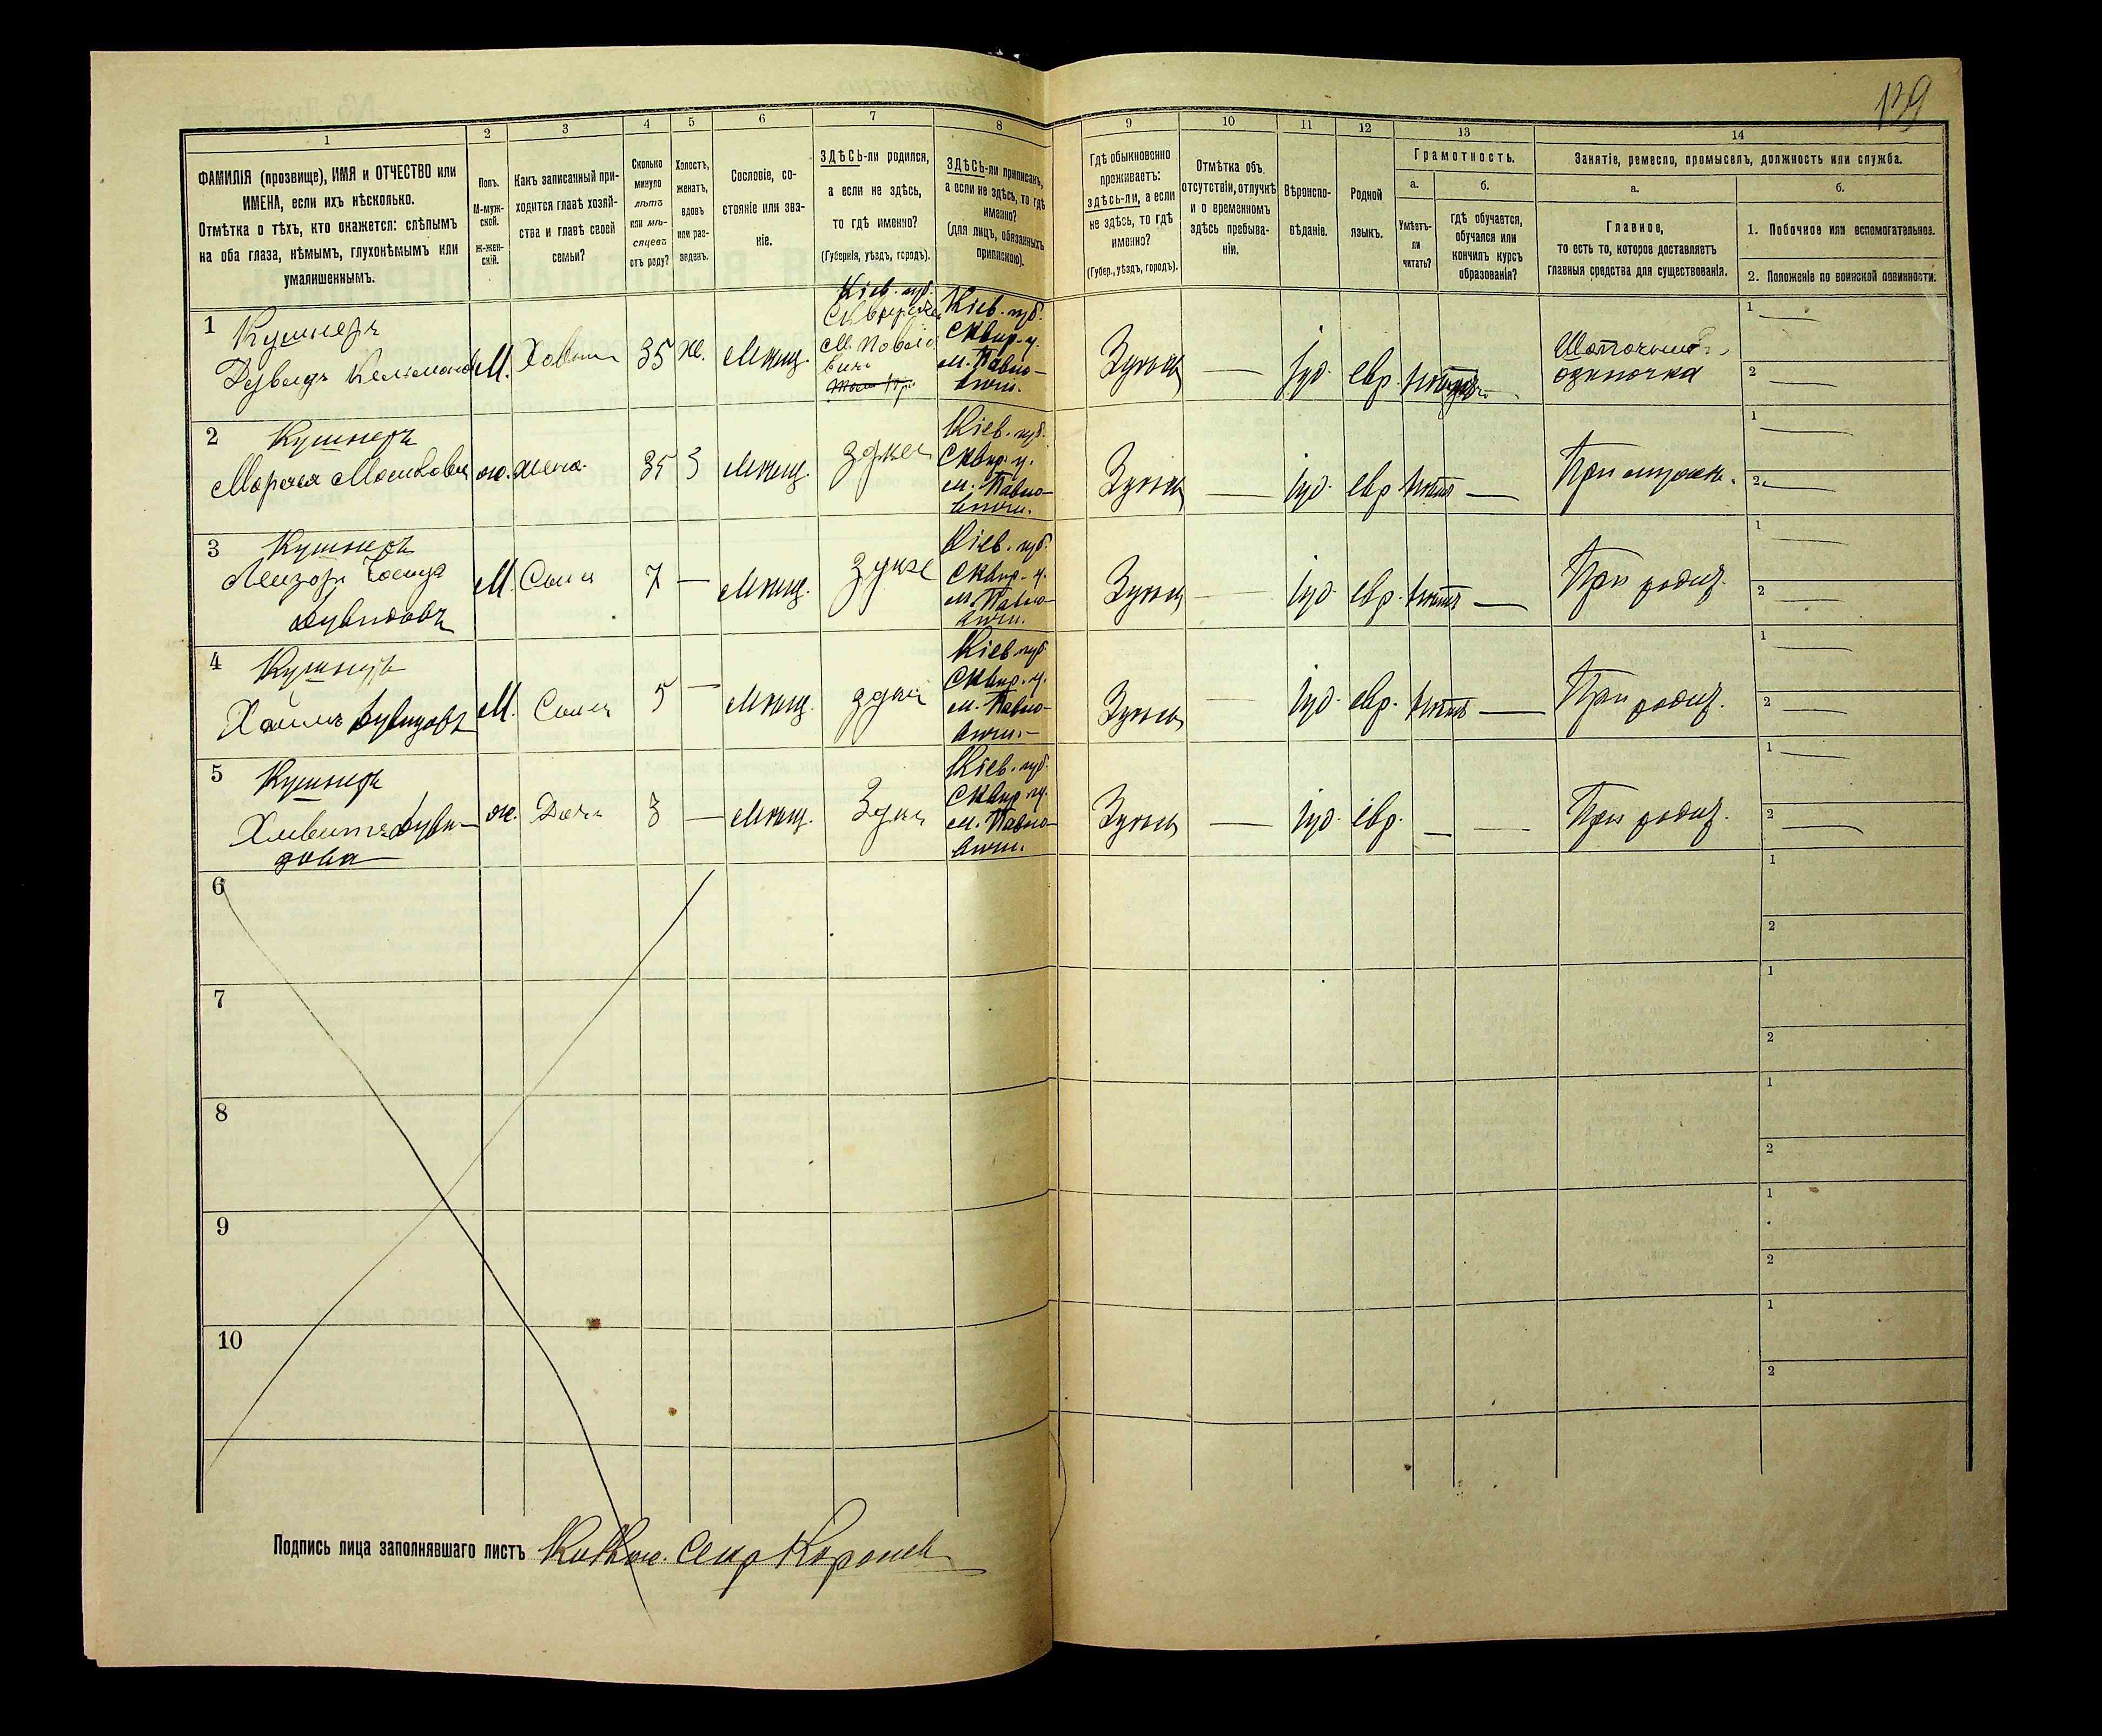 139
1
2
3
4
5
6
7
8
9
10
11
12
13
14
ФАМИЛІЯ (прозвище), ИМЯ и ОТЧЕСТВО или
ИМЕНА, если ихъ нѣсколько.
Отмѣтка о тѣхъ, кто окажется: слѣпымъ
на оба глаза, нѣмымъ, глухонѣмымъ или
умалишеннымъ.
Полъ.
М-муж-
ской.
Ж-жен-
скій.
Какъ записанный при-
ходится главѣ хозяй-
ства и главѣ своей
семьи?
Сколько
минуло
лѣтъ
или мѣ-
сяцевъ
отъ роду?
Холостъ,
женатъ,
вдовъ
или раз-
веденъ.
Сословіе, со-
стояніе или зва-
ніе.
ЗДѢСЬ-ли родился,
а если не здѣсь,
то гдѣ именно?
(Губернія, уѣздъ, городъ).
ЗДѢСЬ-ли приписанъ,
а если не здѣсь, то гдѣ
именно?
(для лицъ, обязанныхъ
припискою).
Гдѣ обыкновенно
проживаетъ:
здѣсь-ли, а если
не здѣсь, то гдѣ
именно?
(Губер., уѣздъ, городъ).
Отмѣтка объ
отсутствіи, отлучкѣ
и о временномъ
здѣсь пребыва-
ніи.
Вѣроиспо-
вѣданіе.
Родной
языкъ.
Грамотность.
а.
Умѣетъ-
ли
читать?
б.
гдѣ обучается,
обучался или
кончилъ курсъ
образованія?
Занятіе, ремесло, промыселъ, должность или служба.
а.
Главное,
то есть то, которое доставляетъ
главныя средства для существованія.
б.
1. Побочное или вспомогательное.
2. Положеніе по воинской повинности.
1
Кушнеръ
Дувидъ
М.
35
ж.
Мѣщ.
Кіев. губ.
Кіев. губ.
Сквир. у.
—
іуд.
евр.
одиночка
1 —
2 —
2
Кушнеръ
Мошкова
ж.
жена
35
З
Мѣщ.
здѣсь
Кіев. губ.
Сквир. у.
Здѣсь
—
іуд.
евр.
нѣтъ
—
1 —
2 —
3
Кушнеръ
Дувидовъ
М.
Сынъ
7
—
Мѣщ.
Здѣсь
Кіев. губ.
Сквир. у.
Здѣсь
—
іуд.
евр.
нѣтъ
—
При родит.
1 —
2 —
4
Кушнеръ
Хаимъ Дувидовъ
М.
Сынъ
5
—
Мѣщ.
здѣсь
Кіев. губ.
Сквир. у.
Здѣсь
—
іуд.
евр.
нѣтъ
—
При родит.
1 —
2 —
5
Кушнеръ
Дуви-
дова
ж.
Дочь
3
—
Мѣщ.
Здѣсь
Кіев. губ.
Сквир. у.
Здѣсь
—
іуд.
евр.
—
—
При родит.
1 —
2 —
6
1
2
7
1
2
8
1
2
9
1
2
10
1
2
Подпись лица заполнявшаго листъ